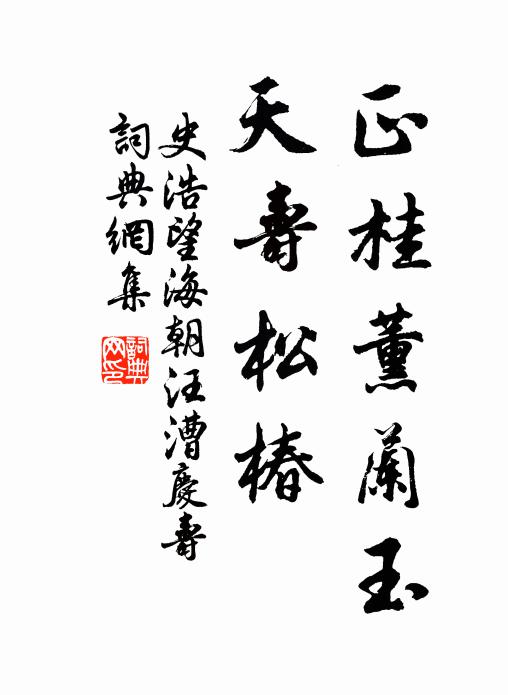 正桂薰蘭玉
天壽松椿
史浩望海朝汪漕慶壽
詞典網集
詞典網印